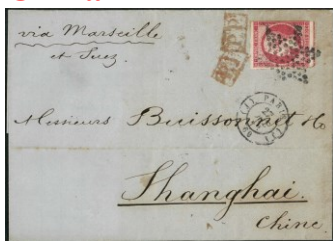 via Marseille
et Suez.
P.P.
PARIS
Messieurs Buissonnet &
Shanghai.
Chine